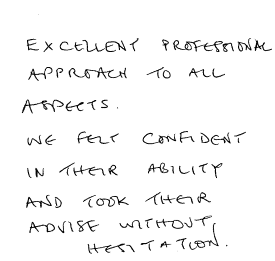 EXCELLENT PROFESSIONAL
APPROACH TO ALL
ASPECTS.
WE FELT CONFIDENT
IN THEIR ABILITY
AND TOOK THEIR
ADVISE WITHOUT,
HESITATION.